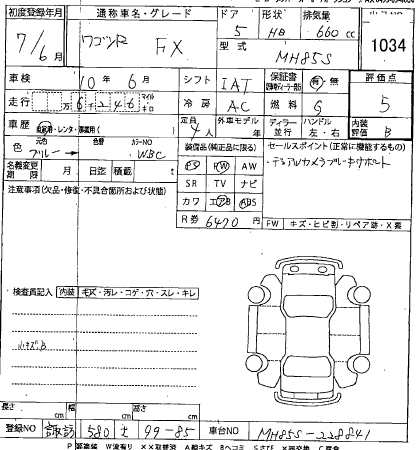 初度登録年月 通称車名・グレード ドア 形状 排気量
7/6月 ワゴンR FX 5 HB 660 cc 1034
型式 MH85S
車検 10年6月 シフト IAT 保証書 有 無 評価点
走行 万6千246 マイル キロ 冷房 AC 燃料 G 5
車歴 自家用・レンタ・ 定員 4人 外車モデル年 ディーラー 並行 ハンドル 左・右 内装評価 B
色 元色 ブルー 色替 カラーNO WBC
装備品(純正品に限る) セールスポイント(正常に機能するもの)
名義変更期限 月 日迄 積載 PS PW AW
SR TV ナビ
カワ エアB ABS
注意事項(欠品・修復・不具合箇所および状態)
R券 6470円
FW キズ・ヒビ割・リペア跡・X要
検査員記入 内装 キズ・汚レ・コゲ・穴・スレ・キレ
小キズB
長さ cm 幅 cm 高さ cm
登録NO 諏訪 580 そ 99-85 車台NO MH85S-228841